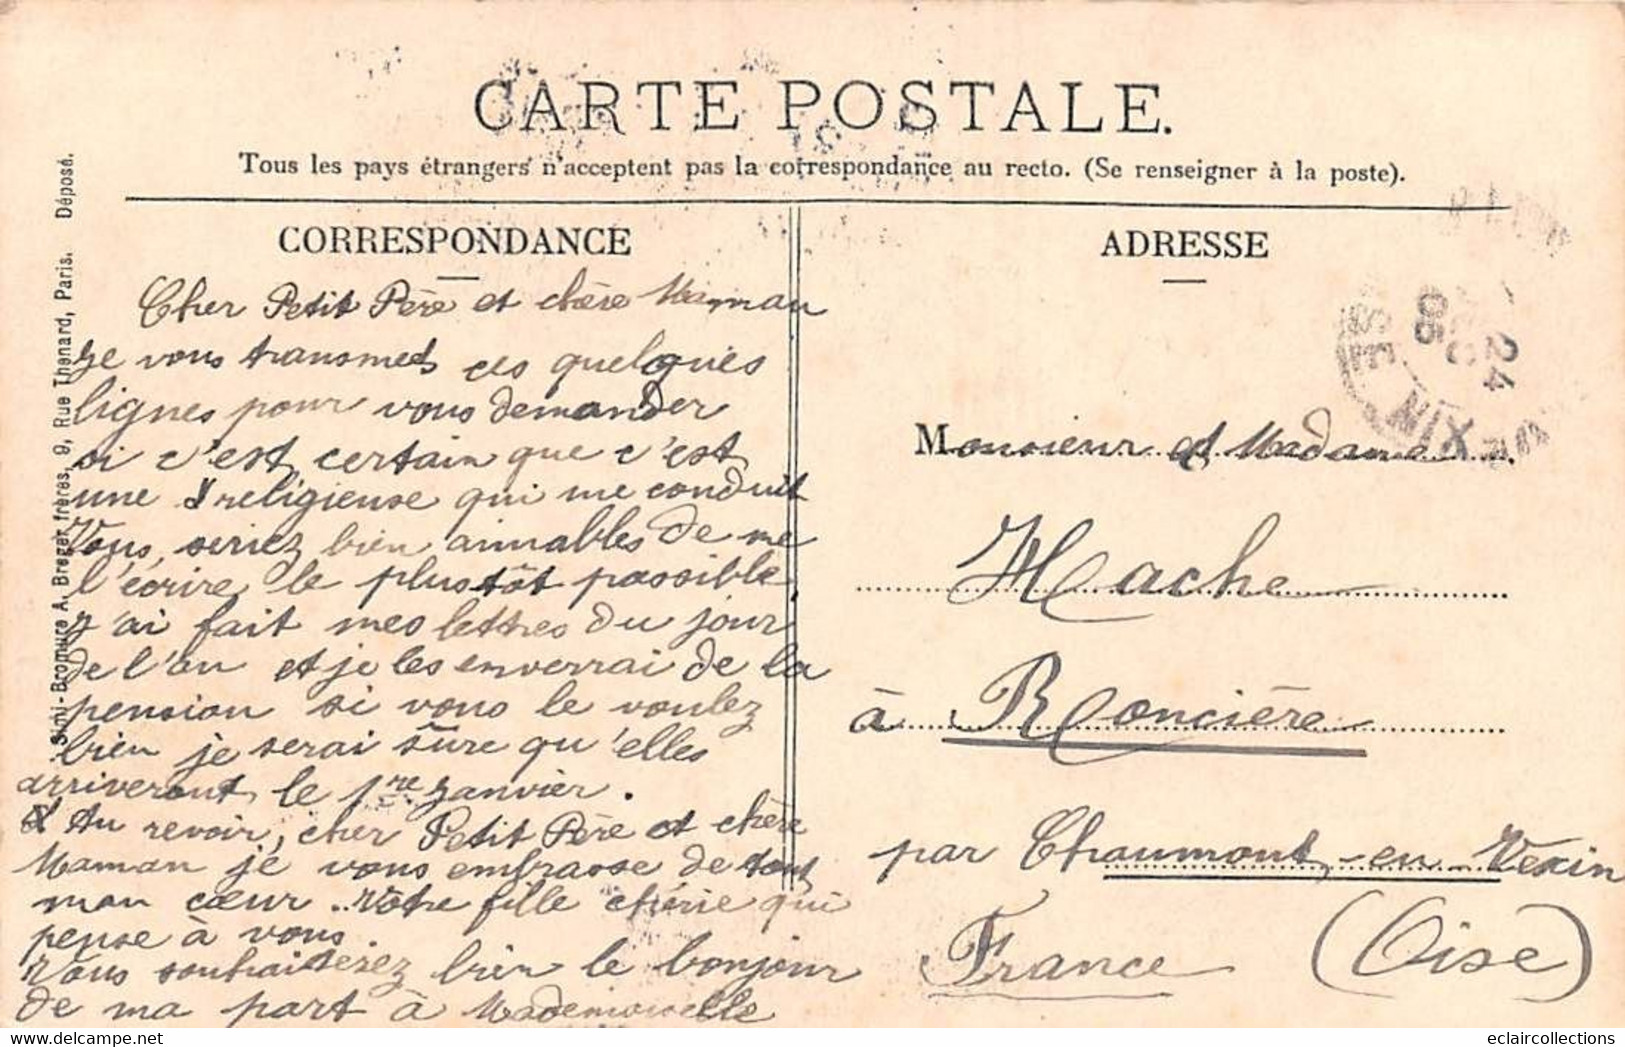 CARTE POSTALE.
Tous les pays étrangers n'acceptent pas la correspondance au recto. (Se renseigner à la poste).
CORRESPONDANCE
Cher Petit Père et chère Maman
je vous transmets ces quelques
lignes pour vous demander
si c'est certain que c'est
une religieuse qui me conduit
Vous seriez bien aimables de me
l'écrire le plus tôt possible,
J'ai fait mes lettres du jour
de l'an et je les enverrai de la
pension si vous le voulez
bien je serai sûre qu'elles
arriveront le 1re janvier.
Au revoir, cher Petit Père et chère
Maman je vous embrasse de tout
mon cœur. Votre fille chérie qui
pense à vous.
Vous souhaiterez bien le bonjour
de ma part à Mademoiselle
ADRESSE
Monsieur et Madame
Hache
à Roncière
par Chaumont-en-Vexin
France (Oise)
24
05
VEXIN
Simi-Bromure A. Breger frères, 9, Rue Thenard, Paris. Déposé.
eclaircollections